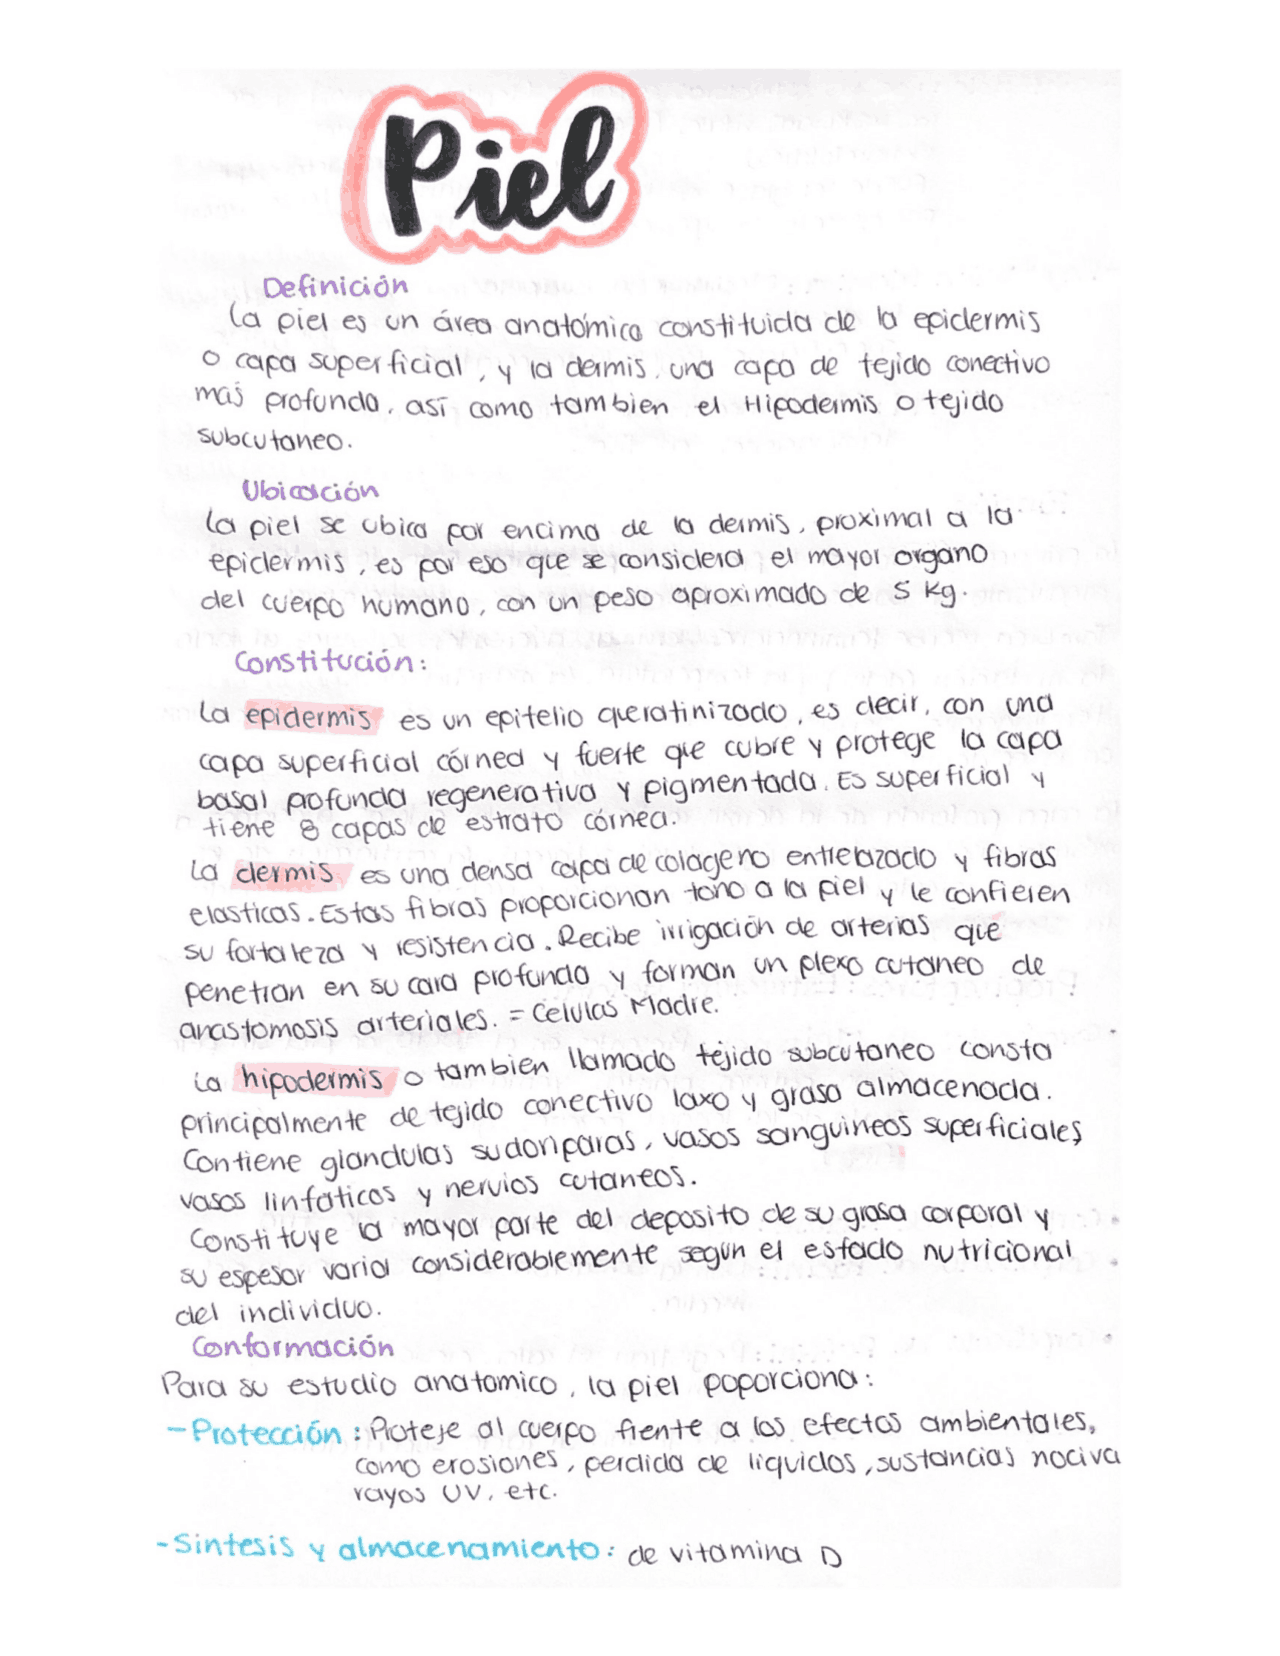 Piel
Definición
La piel es un área anatómica constituida de la epidermis
o capa superficial, y la dermis, una capa de tejido conectivo
más profunda, así como tambien el Hipodermis o tejido
subcutaneo.
Ubicación
La piel se ubica por encima de la dermis, proximal a la
epidermis, es por eso que se considera el mayor organo
del cuerpo humano, con un peso aproximado de 5 Kg.
Constitución:
La epidermis es un epitelio queratinizado, es decir, con una
capa superficial córnea y fuerte que cubre y protege la capa
basal profunda regenerativa y pigmentada. Es superficial y
tiene 8 capas de estrato córnea.
La dermis es una densa capa de colageno entrelazado y fibras
elasticas. Estas fibras proporcionan tono a la piel y le confieren
su fortaleza y resistencia. Recibe irrigación de arterias que
penetran en su cara profunda y forman un plexo cutaneo de
anastomosis arteriales. = Celulas Madre.
La hipodermis o tambien llamado tejido subcutaneo consta
principalmente de tejido conectivo laxo y grasa almacenada.
Contiene glandulas sudoriparas, vasos sanguineos superficiales,
vasos linfaticos y nervios cutaneos.
Constituye la mayor parte del deposito de su grasa corporal y
su espesor varia considerablemente según el estado nutricional
del individuo.
Conformación
Para su estudio anatomico, la piel poporciona:
- Protección: Proteje al cuerpo frente a los efectos ambientales,
como erosiones, perdida de liquidos, sustancias nociva
rayos UV, etc.
- Sintesis y almacenamiento: de vitamina D